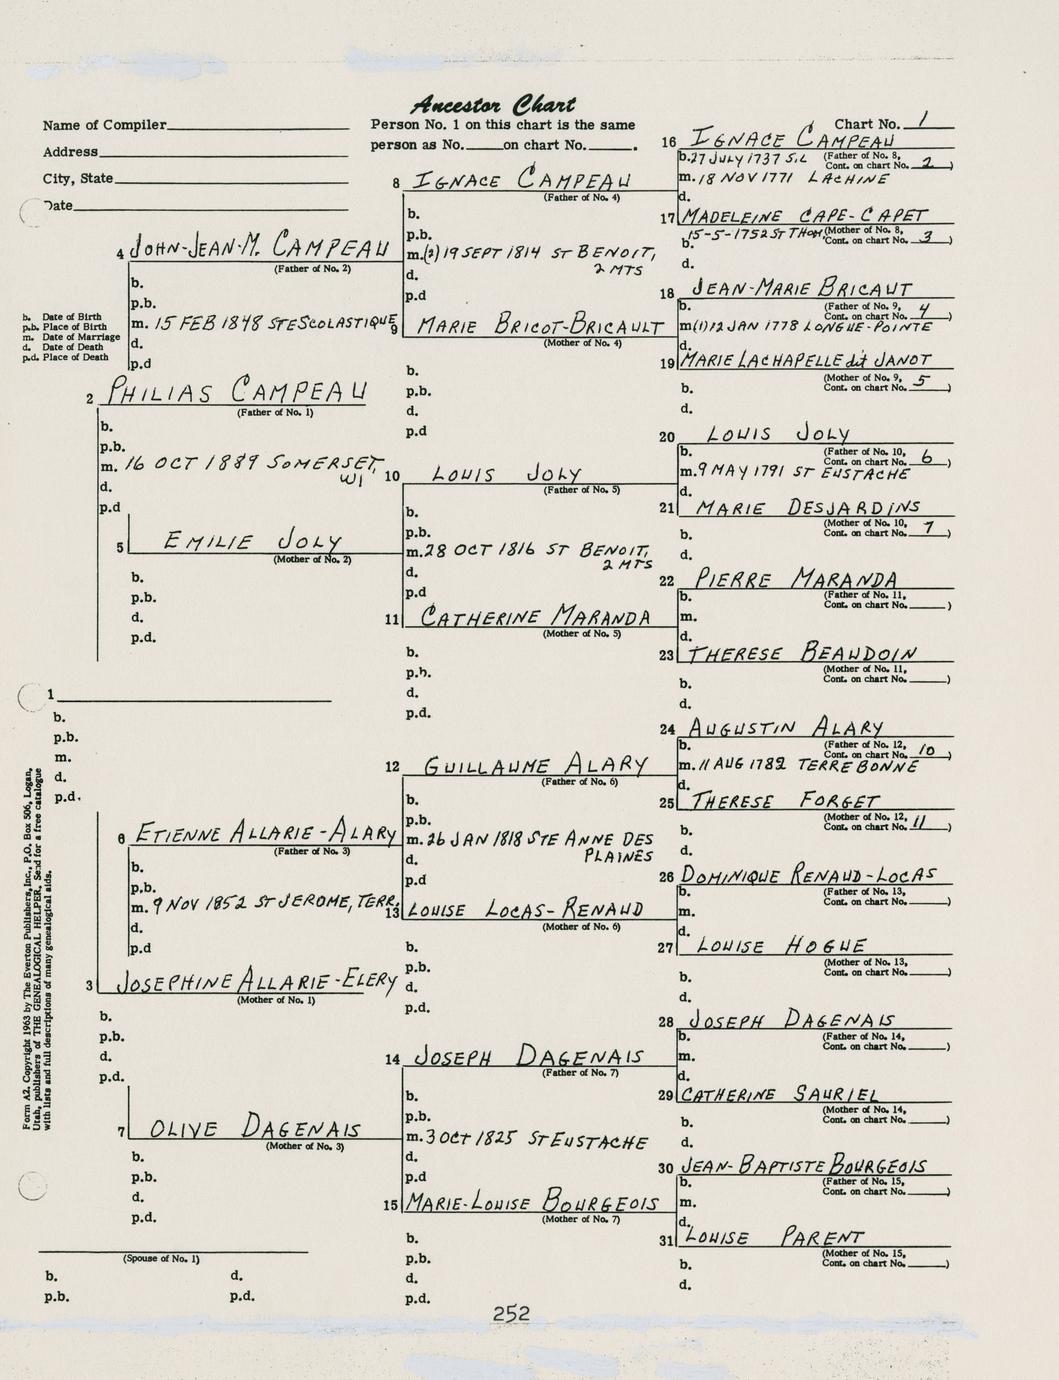 Ancestor Chart
Name of Compiler
Address
City, State
Date
Person No. 1 on this chart is the same
person as No. on chart No. .
Chart No. 1
16 IGNACE CAMPEAU
b. 27 JULY 1737 S.L (Father of No. 8,
Cont. on chart No. 2 )
m. 18 NOV 1771 LACHINE
d.
8 IGNACE CAMPEAU
(Father of No. 4)
b.
p.b.
m. (2) 19 SEPT 1814 ST BENOIT,
2 MTS
d.
p.d
17 MADELEINE CAPE-CAPET
15-5-1752 ST THOM. (Mother of No. 8,
b. Cont. on chart No. 3 )
d.
4 JOHN-JEAN-M. CAMPEAU
(Father of No. 2)
b.
p.b.
m. 15 FEB 1848 STE SCOLASTIQUE
d.
p.d
b. Date of Birth
p.b. Place of Birth
m. Date of Marriage
d. Date of Death
p.d. Place of Death
18 JEAN-MARIE BRICAUT
b. (Father of No. 9,
Cont. on chart No. 4 )
m(1) 12 JAN 1778 LONGUE-POINTE
d.
9 MARIE BRICOT-BRICAULT
(Mother of No. 4)
b.
p.b.
d.
p.d
19 MARIE LACHAPELLE dit JANOT
(Mother of No. 9,
b. Cont. on chart No. 5 )
d.
2 PHILIAS CAMPEAU
(Father of No. 1)
b.
p.b.
m. 16 OCT 1889 SOMERSET,
WI
d.
p.d
20 LOUIS JOLY
b. (Father of No. 10,
Cont. on chart No. 6 )
m. 9 MAY 1791 ST EUSTACHE
d.
10 LOUIS JOLY
(Father of No. 5)
b.
p.b.
m. 28 OCT 1816 ST BENOIT,
2 MTS
d.
p.d
21 MARIE DESJARDINS
(Mother of No. 10,
b. Cont. on chart No. 7 )
d.
5 EMILIE JOLY
(Mother of No. 2)
b.
p.b.
d.
p.d.
22 PIERRE MARANDA
b. (Father of No. 11,
Cont. on chart No. )
m.
d.
11 CATHERINE MARANDA
(Mother of No. 5)
b.
p.b.
d.
p.d.
23 THERESE BEAUDOIN
(Mother of No. 11,
b. Cont. on chart No. )
d.
1
b.
p.b.
m.
d.
p.d.
24 AUGUSTIN ALARY
b. (Father of No. 12,
Cont. on chart No. 10 )
m. 11 AUG 1782 TERREBONNE
d.
12 GUILLAUME ALARY
(Father of No. 6)
b.
p.b.
m. 26 JAN 1818 STE ANNE DES
PLAINES
d.
p.d
25 THERESE FORGET
(Mother of No. 12,
b. Cont. on chart No. 11 )
d.
6 ETIENNE ALLARIE-ALARY
(Father of No. 3)
b.
p.b.
m. 9 NOV 1852 ST JEROME, TERR.
d.
p.d
26 DOMINIQUE RENAUD-LOCAS
b. (Father of No. 13,
Cont. on chart No. )
m.
d.
13 LOUISE LOCAS-RENAUD
(Mother of No. 6)
b.
p.b.
d.
p.d.
27 LOUISE HOGUE
(Mother of No. 13,
b. Cont. on chart No. )
d.
3 JOSEPHINE ALLARIE-ELERY
(Mother of No. 1)
b.
p.b.
d.
p.d.
28 JOSEPH DAGENAIS
b. (Father of No. 14,
Cont. on chart No. )
m.
d.
14 JOSEPH DAGENAIS
(Father of No. 7)
b.
p.b.
m. 3 OCT 1825 ST EUSTACHE
d.
p.d
29 CATHERINE SAURIEL
(Mother of No. 14,
b. Cont. on chart No. )
d.
7 OLIVE DAGENAIS
(Mother of No. 3)
b.
p.b.
d.
p.d.
30 JEAN-BAPTISTE BOURGEOIS
b. (Father of No. 15,
Cont. on chart No. )
m.
d.
15 MARIE-LOUISE BOURGEOIS
(Mother of No. 7)
b.
p.b.
d.
p.d.
31 LOUISE PARENT
(Mother of No. 15,
b. Cont. on chart No. )
d.
(Spouse of No. 1)
b. d.
p.b. p.d.
Form A2. Copyright 1963 by The Everton Publishers, Inc., P.O. Box 506, Logan,
Utah, publishers of THE GENEALOGICAL HELPER. Send for a free catalogue
with lists and full descriptions of many genealogical aids.
252